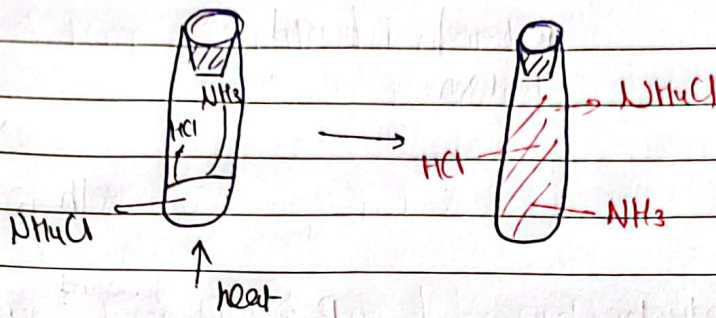 NH3
HCl
NH4Cl
heat
NH4Cl
HCl
NH3